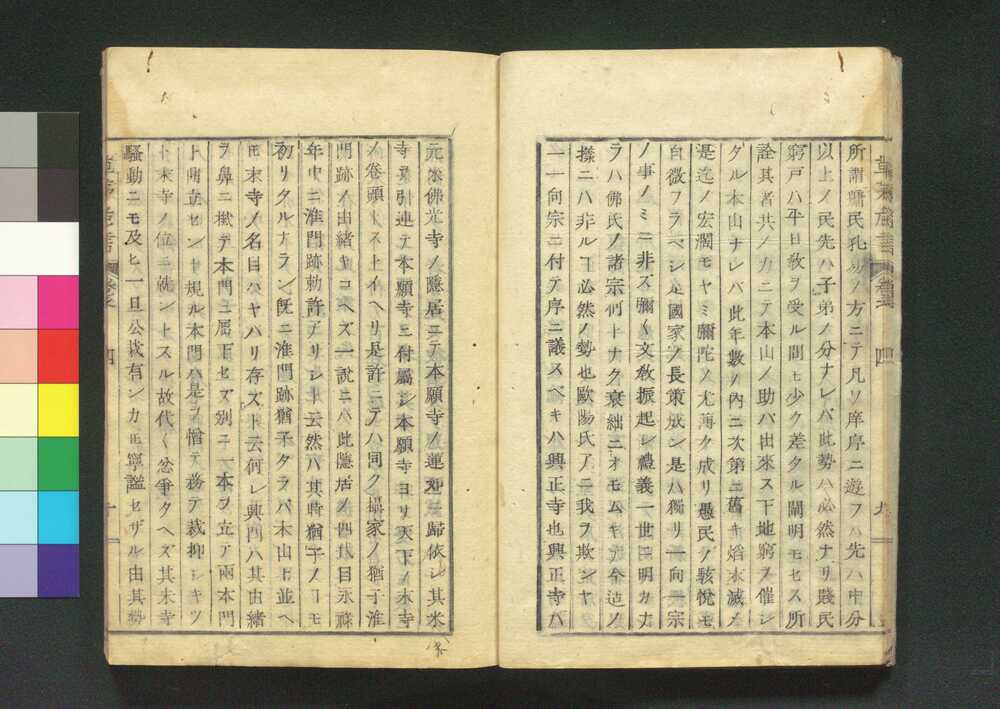 所謂黠民孔ノ方ニテ凡ソ庠序ニ遊フハ先ハ中分
以上ノ民先ハ子弟ノ分ナレバ此勢ハ必然ナリ賤民
窮戸ハ平日敎ヲ受ル間モ少ク差タル開明モセス所
詮其者共ノカニテ本山ノ助バ由來ス下地窮ヲ催シ
タル本山ナレバ此年數ノ內ニ次第ニ舊キ焰ホ滅ノ
是迄ノ宏濶モヤミ彌陀ノ尤薄ク成リ愚民ノ駭悅モ
自微フラベシ是國家ノ長策成ン是ハ獨リ一向一宗
ノ事ノミニ非ズ彌〱文敎振起シ禮義一世ニ明カナ
ラハ佛氏ノ諸宗何トナク衰絀ニオモムキテ今迄ノ
樣ニハ非ルヿ必然ノ勢也歐陽氏了ニ我ヲ欺ンヤ
一一向宗ニ付テ序ニ議スベキハ興正寺也興正寺ハ
元來佛光寺ノ隱居ニテ本願寺ノ蓮如ニ歸依シ其末
寺ヲ引連テ本願寺ニ付屬シ本願寺ヨリ天下ノ末寺
ノ卷頭トスト云ヘリ是許ニテハ同ク攝家ノ猶子准
門跡ノ由緒キコヘズ一說ニハ此隱居ノ四代目永祿
年中ニ准門跡勅許アリシト云然ハ其時猶子ノヿモ
初リタルナラン旣ニ准門跡猶子タラバ本山ト並ヘ
モ末寺ノ名目ハヤハリ存ズト云何レ興門ハ其由緒
ヲ鼻ニ掛テ本門ニ屬下セズ別ニ一本ヲ立テ兩本門
ト鼎立セントヲ規ル本門ハ是ヲ憎テ務テ裁抑シキツ
ト末寺ノ位ニ就ントスル故代〱忿爭タヘズ其末寺
騷動ニモ及ヒ一旦公裁有シカ𪜈寧謐セザル由其勢